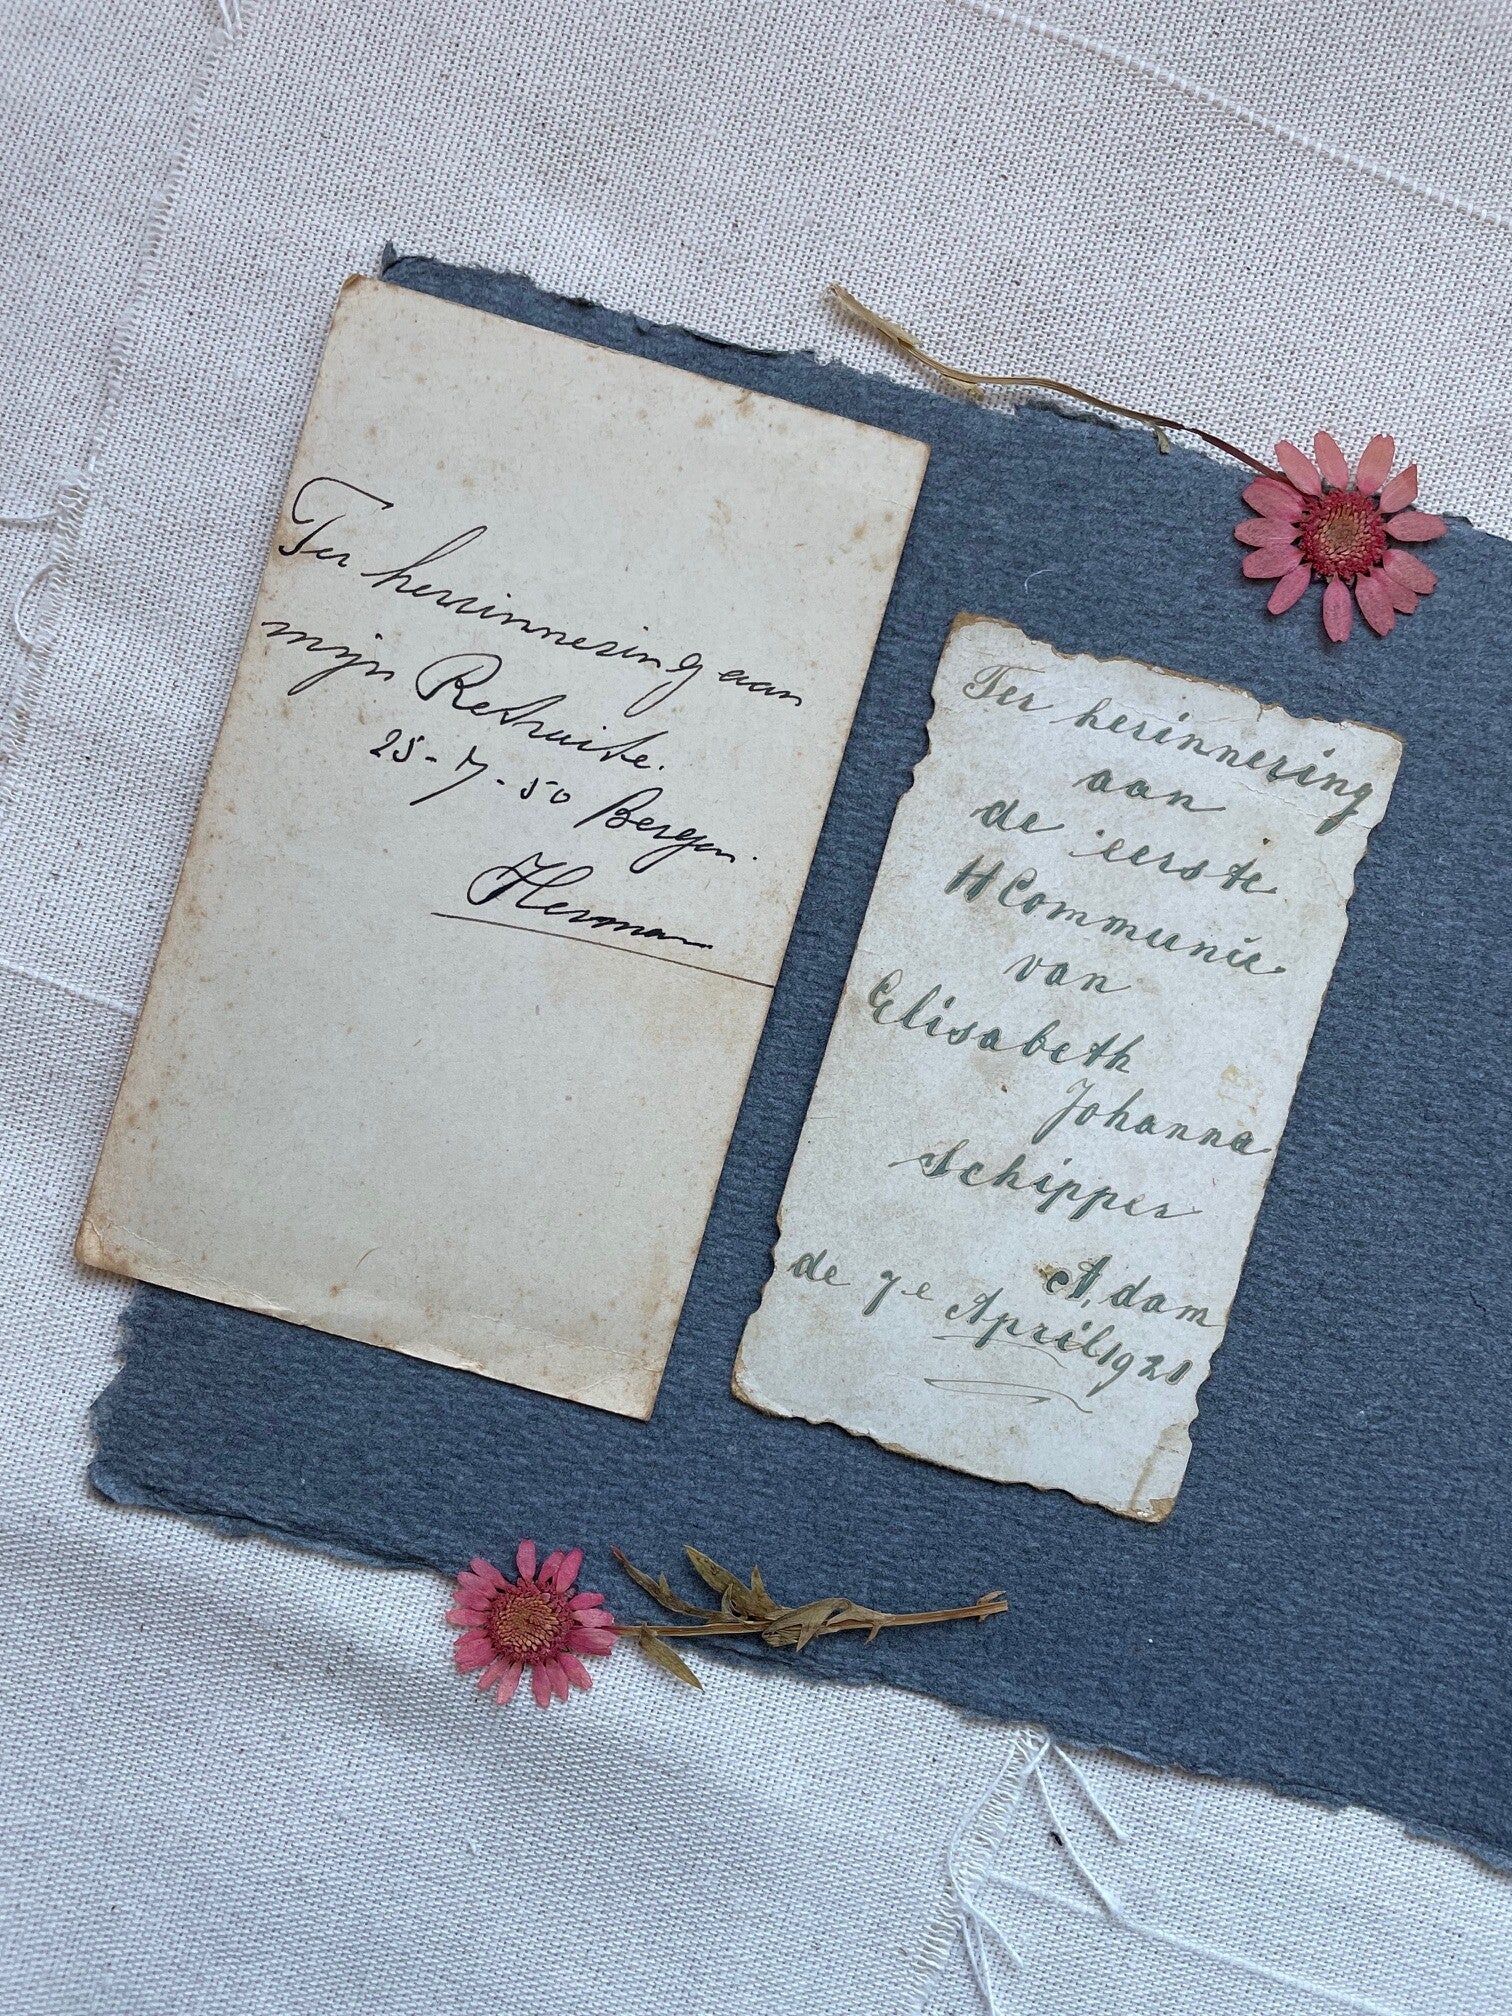 Ter herinnering aan
mijn Retraite.
25-7-50 Bergen.
Herman
Ter herinnering
aan
de eerste
H Communie
van
Elisabeth
Johanna
Schipper
A,dam
de 7e April 1921